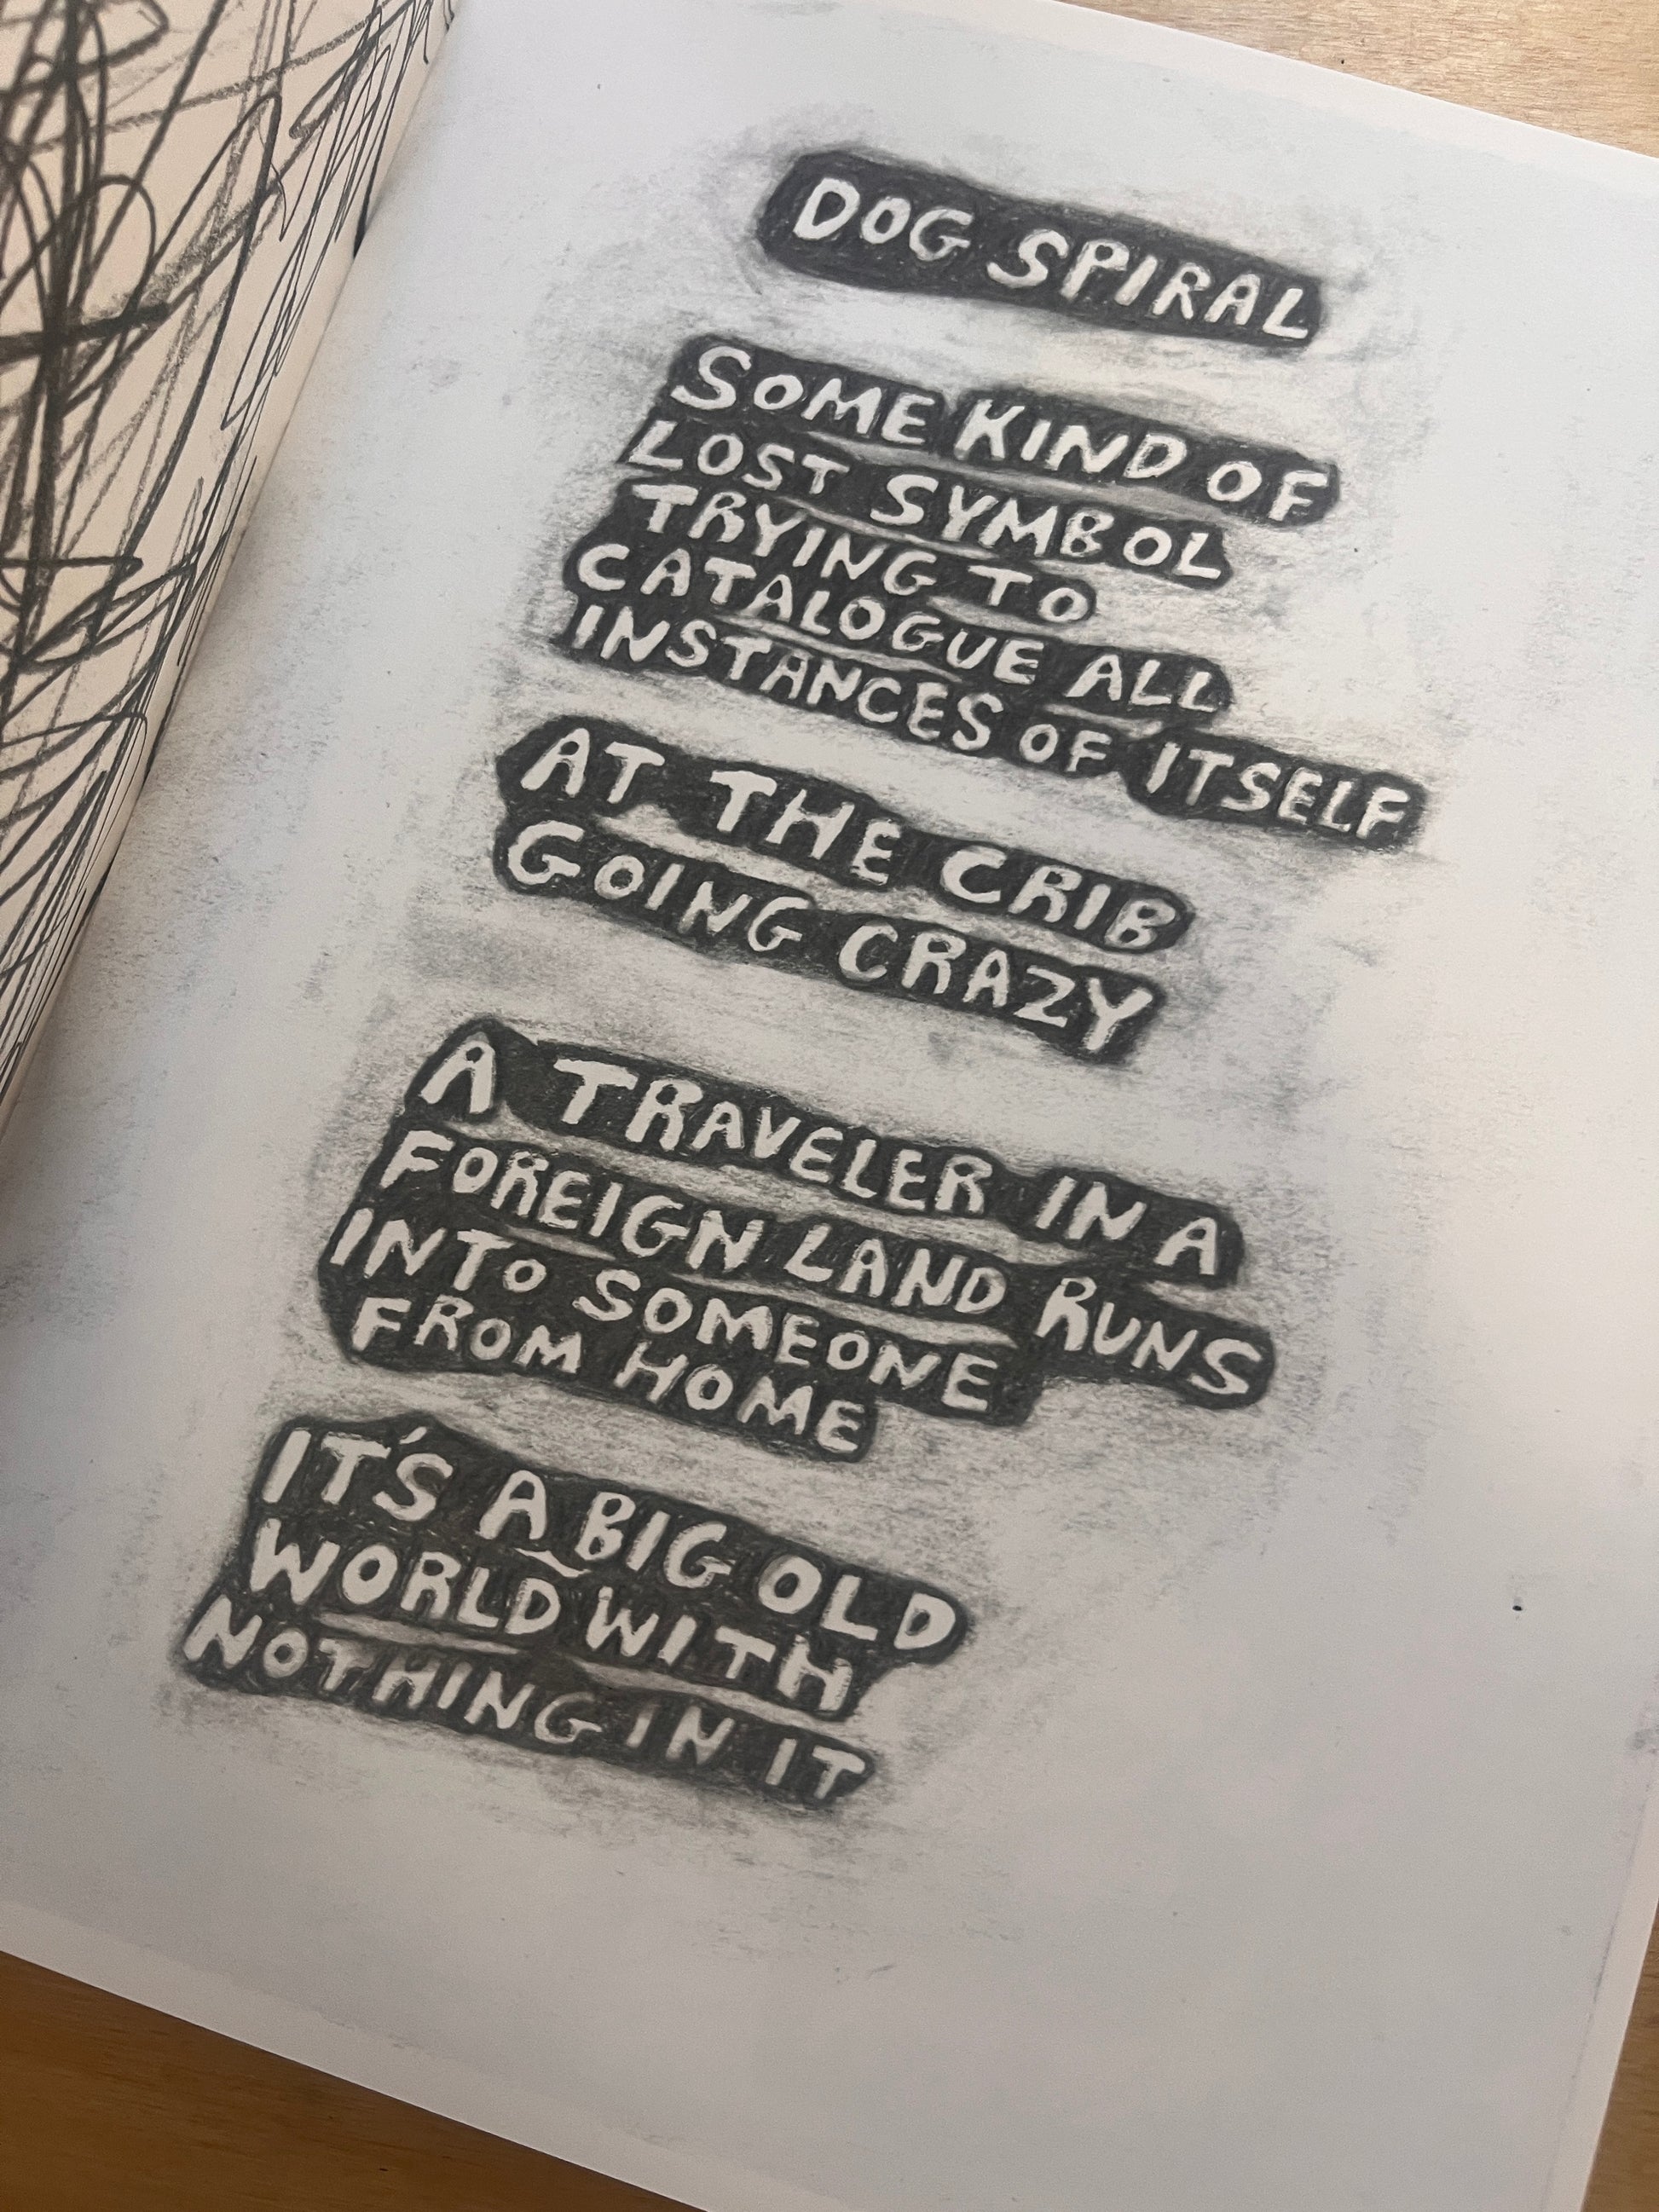 DOG SPIRAL
SOME KIND OF
LOST SYMBOL
TRYING TO
CATALOGUE ALL
INSTANCES OF ITSELF
AT THE CRIB
GOING CRAZY
A TRAVELER IN A
FOREIGN LAND RUNS
INTO SOMEONE
FROM HOME
IT'S A BIG OLD
WORLD WITH
NOTHING IN IT